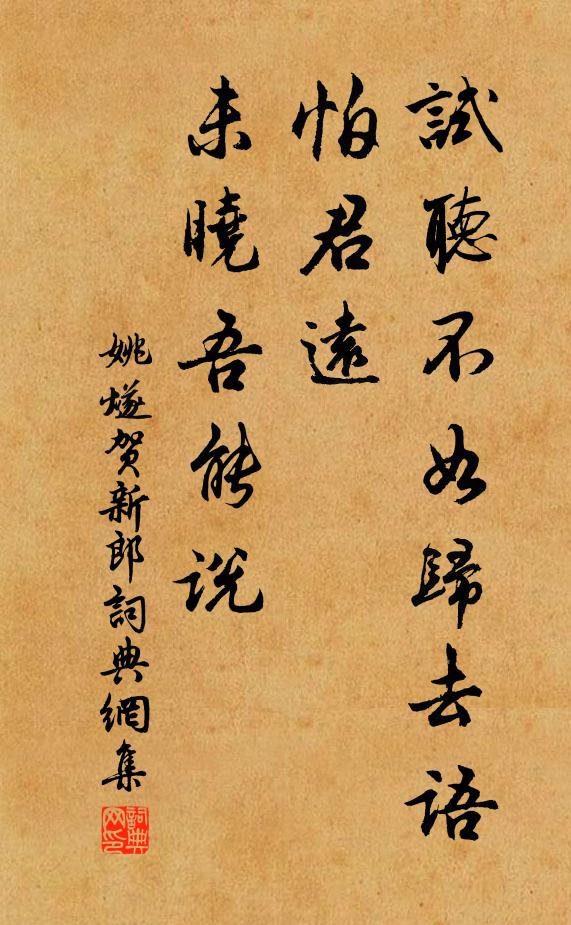 試聽不如歸去語
怕君遠
未曉吾能説
姚燧賀新郎詞典網集
詞典网印